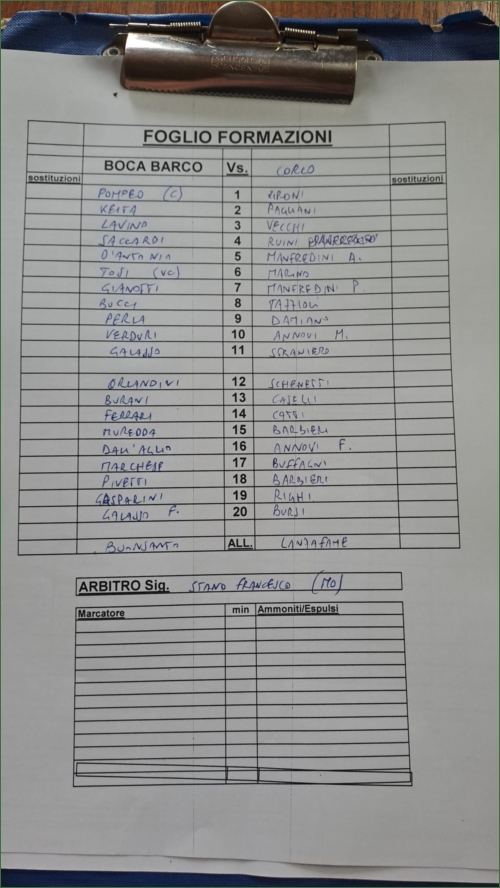 FOGLIO FORMAZIONI
BOCA BARCO Vs. CORLO
sostituzioni sostituzioni
POMPEO (C) 1 PIRONI
KEITA 2 PAGLIANI
LAVINO 3 VECCHI
SACCARDI 4 RUINI
D'ANTONIO 5 MANFREDINI A.
TOSI (VC) 6 MARINO
GIANOTTI 7 MANFREDINI P.
BUCCI 8
PERLA 9 DAMIANO
VERDURI 10 ANNOVI M.
GALASSO 11 STRANIERO
ORLANDINI 12 SCHENETTI
BURANI 13 CASELLI
FERRARI 14
MUREDDA 15 BARBIERI
DALL'AGLIO 16 ANNOVI F.
MARCHESE 17 BUFFAGNI
PIVETTI 18 BARBIERI
GASPARINI 19 RIGHI
GALASSO F. 20 BURSI
BUONSANTO ALL. LANZAFAME
ARBITRO Sig. STANO FRANCESCO (MO)
Marcatore min Ammoniti/Espulsi